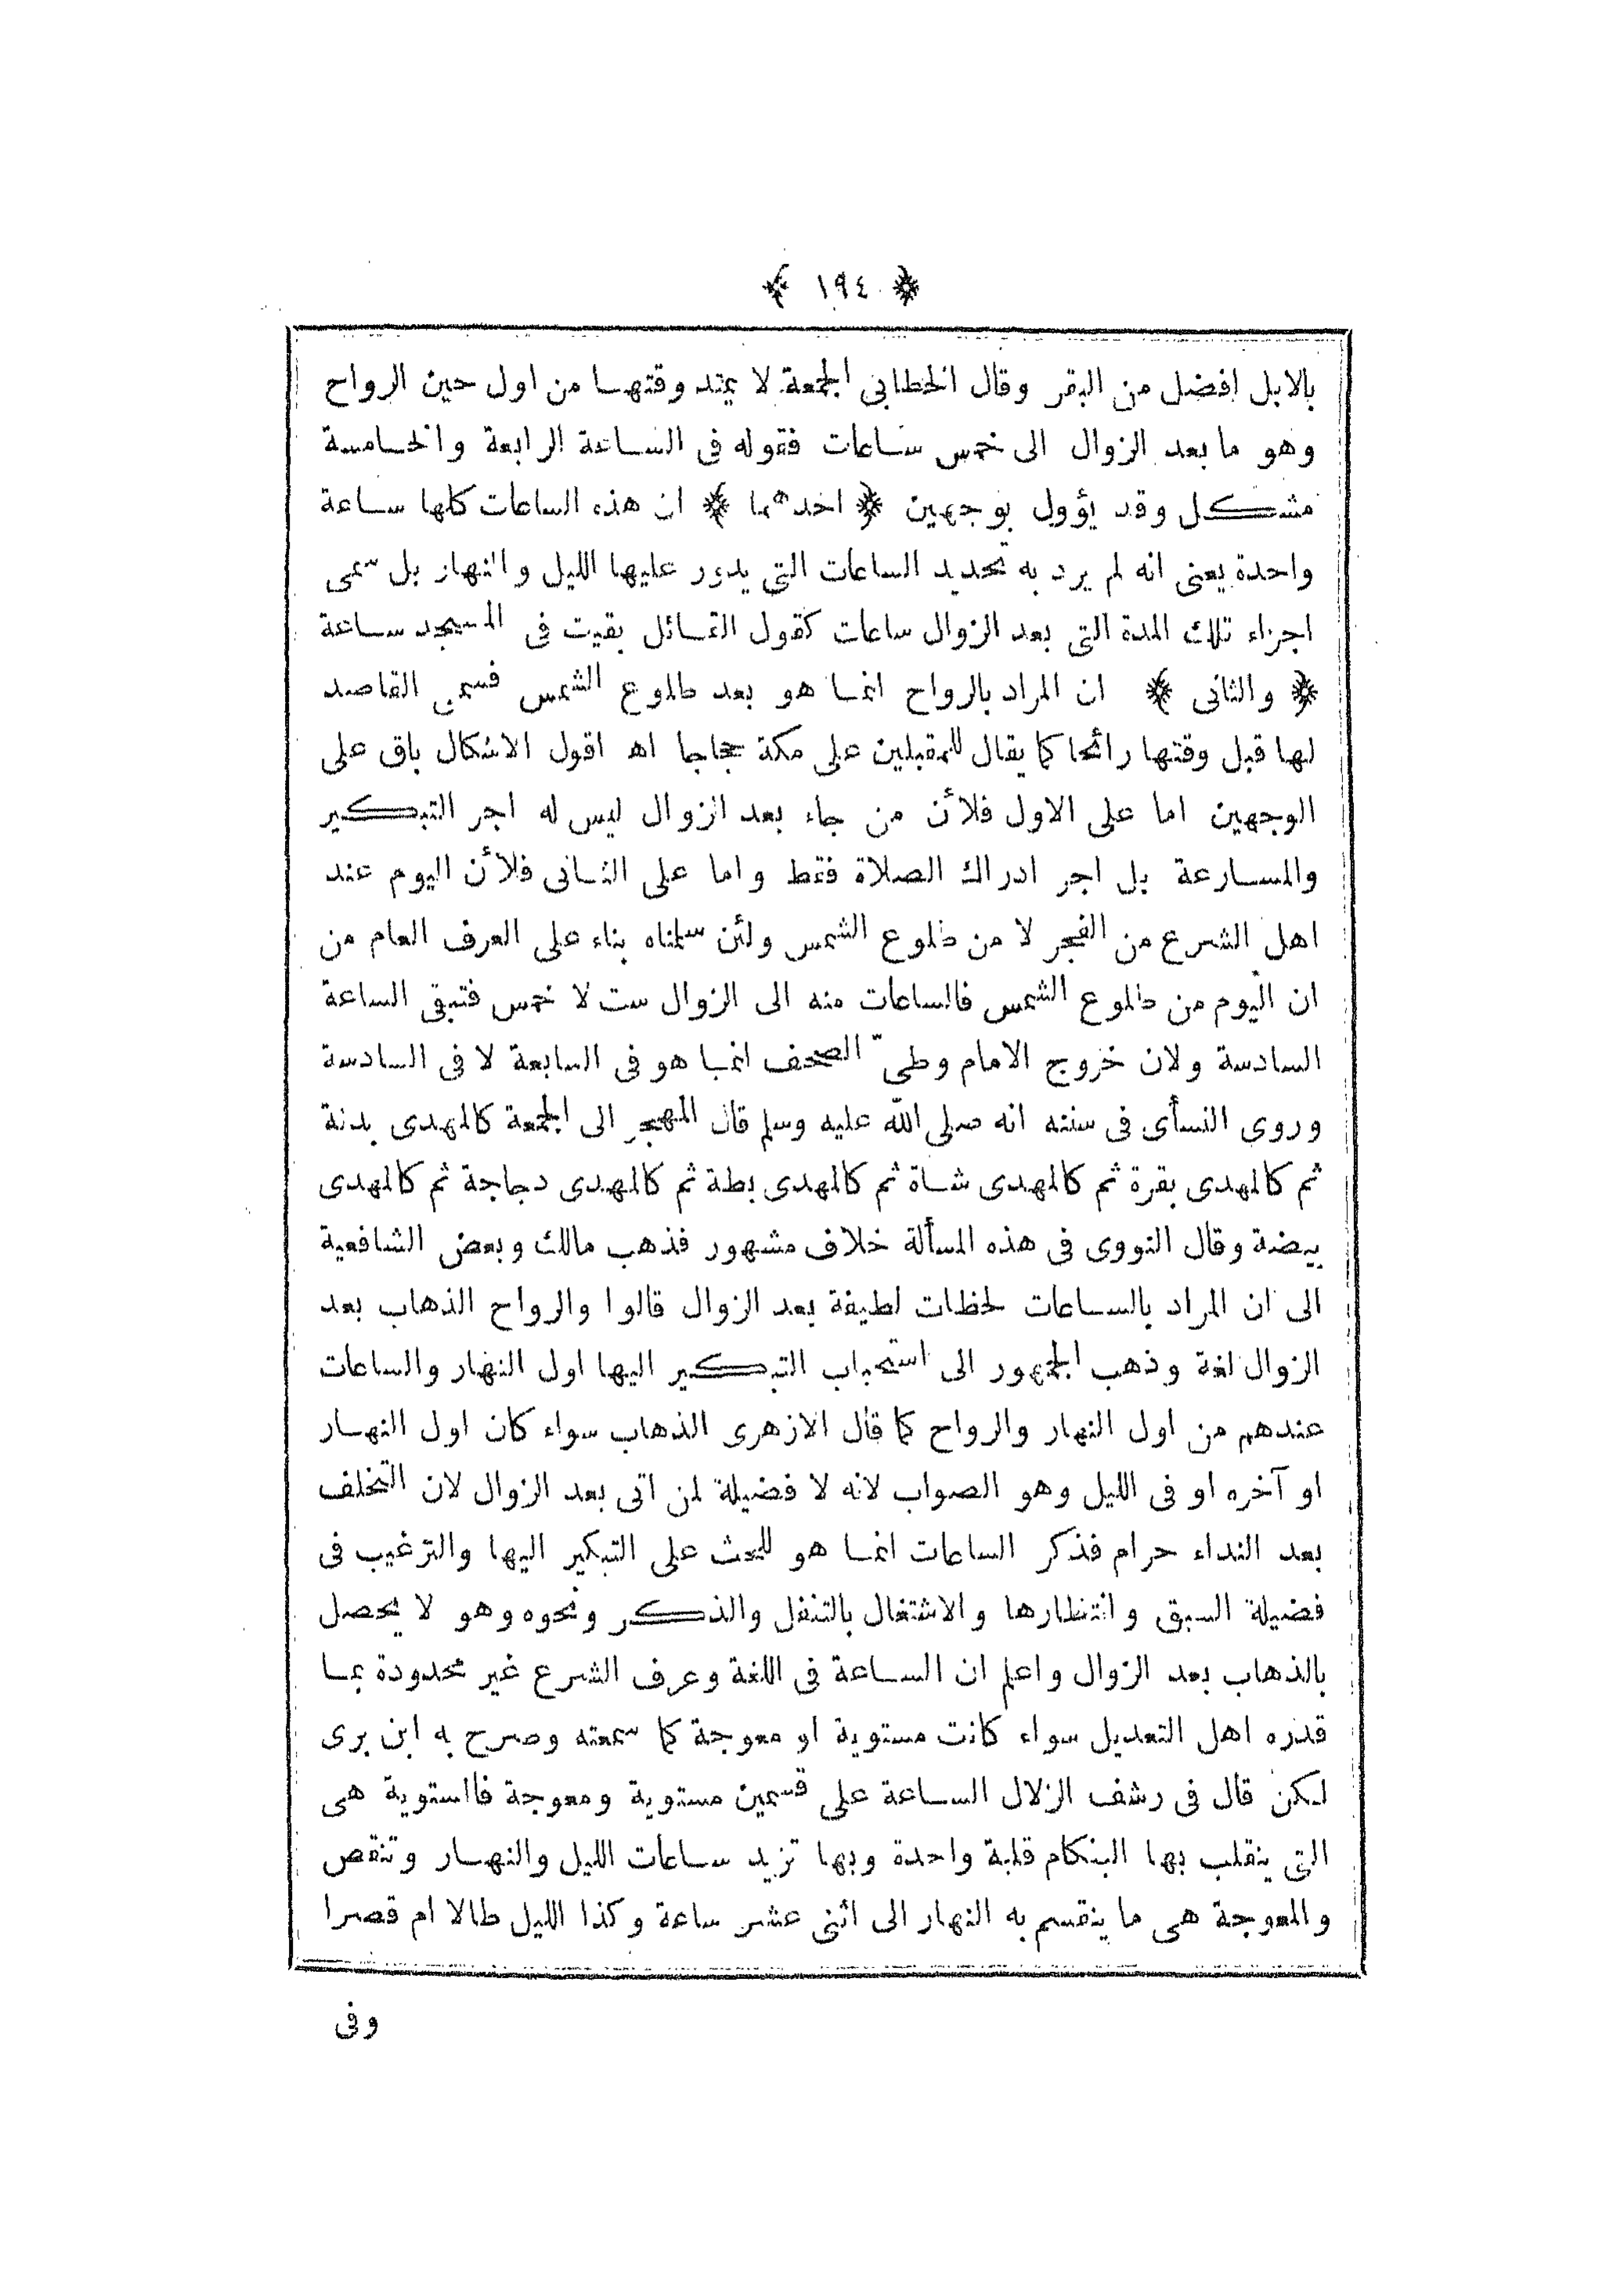 ﴿ ١٩٤ ﴾
بالابل افضل من البقر وقال الخطابى الجمعة لا يمتد وقتهـا من اول حين الرواح
وهو ما بعد الزوال الى خمس ساعات فقوله فى الساعة الرابعة والخامسة
مشكل وقد يؤول بوجهين ﴿ احدهما ﴾ ان هذه الساعات كلها ساعة
واحدة يعنى انه لم يرد به تحديد الساعات التى يدور عليها الليل والنهار بل سمى
اجزاء تلك المدة التى بعد الزوال ساعات كقول القائل بقيت فى المسجد ساعة
﴿ والثانى ﴾ ان المراد بالرواح انما هو بعد طلوع الشمس فسمى القاصد
لها قبل وقتها رائحا كما يقال للمقبلين على مكة حجاجا اهـ اقول الاشكال باق على
الوجهين اما على الاول فلأن من جاء بعد الزوال ليس له اجر التبكير
والمسارعة بل اجر ادراك الصلاة فقط واما على الثانى فلأن اليوم عند
اهل الشرع من الفجر لا من طلوع الشمس ولئن سلمناه بناء على العرف العام من
ان اليوم من طلوع الشمس فالساعات منه الى الزوال ست لا خمس فتبقى الساعة
السادسة ولان خروج الامام وطىّ الصحف انما هو فى السابعة لا فى السادسة
وروى النسأى فى سننه انه صلى الله عليه وسلم قال المهجر الى الجمعة كالمهدى بدنة
ثم كالمهدى بقرة ثم كالمهدى شاة ثم كالمهدى بطة ثم كالمهدى دجاجة ثم كالمهدى
بيضة وقال النووى فى هذه المسألة خلاف مشهور فذهب مالك وبعض الشافعية
الى ان المراد بالساعات لحظات لطيفة بعد الزوال قالوا والرواح الذهاب بعد
الزوال لغة وذهب الجمهور الى استحباب التبكير اليها اول النهار والساعات
عندهم من اول النهار والرواح كما قال الازهرى الذهاب سواء كان اول النهار
او آخره او فى الليل وهو الصواب لانه لا فضيلة لمن اتى بعد الزوال لان التخلف
بعد النداء حرام فذكر الساعات انما هو للحث على التبكير اليها والترغيب فى
فضيلة السبق وانتظارها والاشتغال بالتنفل والذكر ونحوه وهو لا يحصل
بالذهاب بعد الزوال واعلم ان الساعة فى اللغة وعرف الشرع غير محدودة بما
قدره اهل التعديل سواء كانت مستوية او معوجة كما سمعته وصرح به ابن برى
لكن قال فى رشف الزلال الساعة على قسمين مستوية ومعوجة فالستوية هى
التى ينقلب بها البنكام قلبة واحدة وبها تزيد ساعات الليل والنهار وتنقص
والمعوجة هى ما ينقسم به النهار الى اثنى عشر ساعة وكذا الليل طالا ام قصرا
وفى